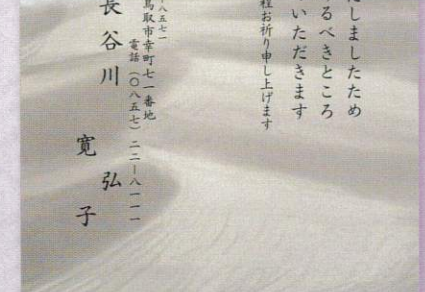 だしましたため
るべきところ
いただきます
程お祈り申し上げます
八五七一
鳥取市幸町七一番地
電話（〇八五七）二二ー八一一一
長谷川 寛子
弘